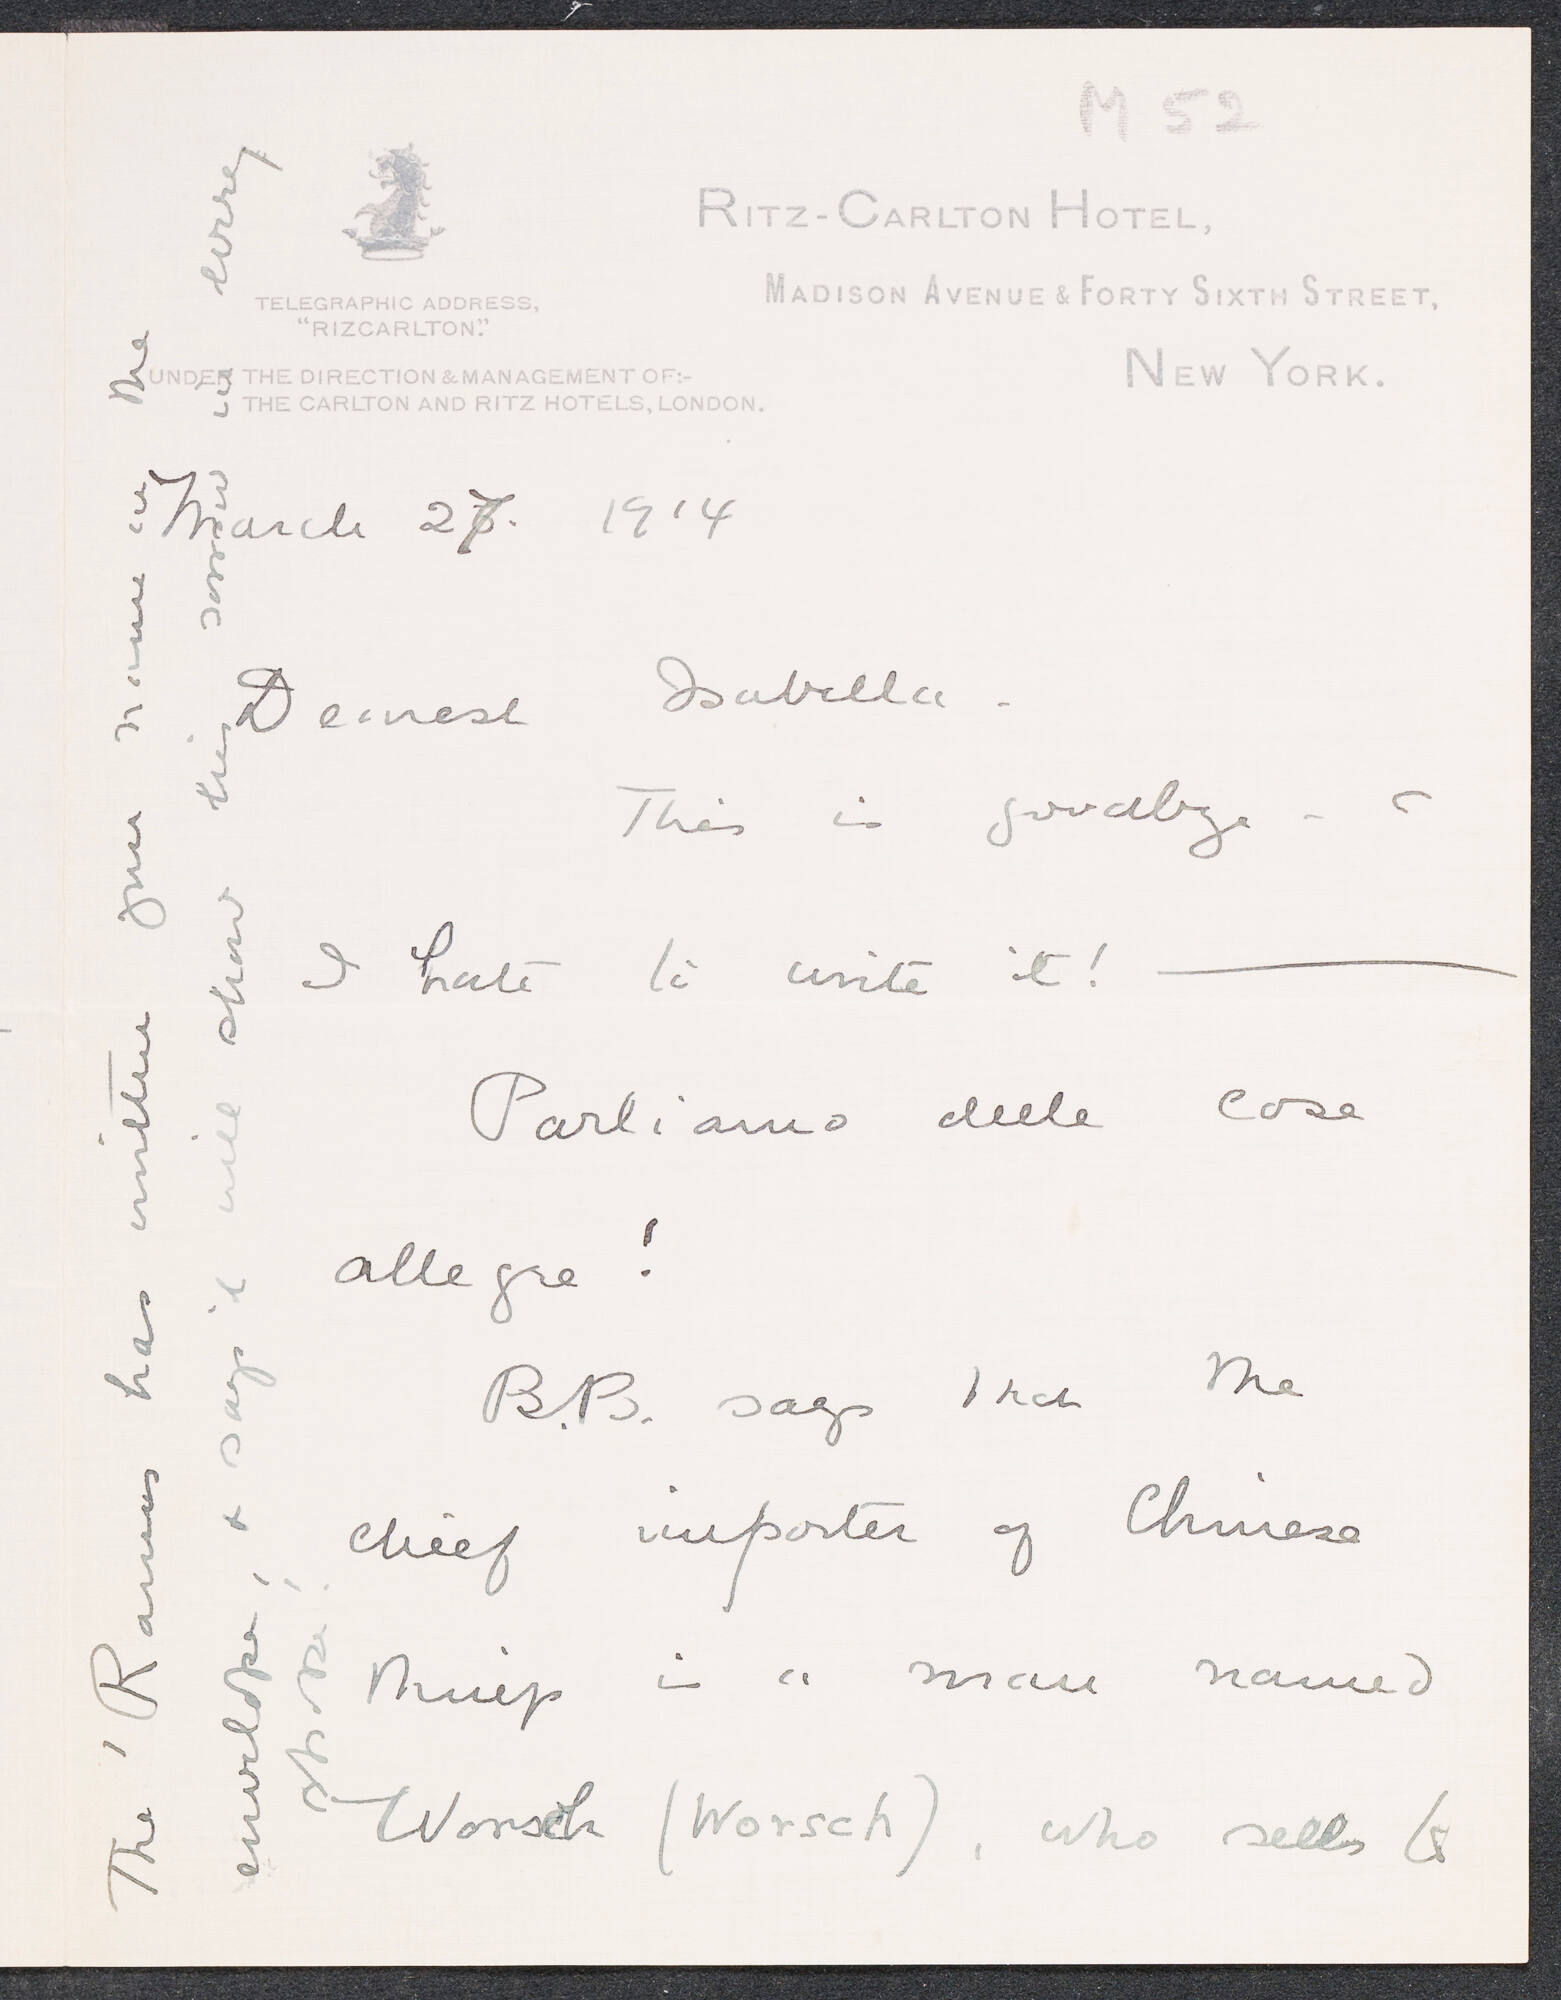 M 52
RITZ-CARLTON HOTEL,
MADISON AVENUE & FORTY SIXTH STREET,
NEW YORK.
TELEGRAPHIC ADDRESS,
"RIZCARLTON."
UNDER THE DIRECTION & MANAGEMENT OF:-
THE CARLTON AND RITZ HOTELS, LONDON.
March 27. 1914
Dearest Isabella -
This is goodbye - -
I hate to write it!
Parliamo delle cose
allegre!
B.B. says that the
chief importer of Chinese
things is a man named
Worsch (Worsch), who sells to
The 'Ramus has written your name in the
envelope, & says it will show this somew in every
stroke!